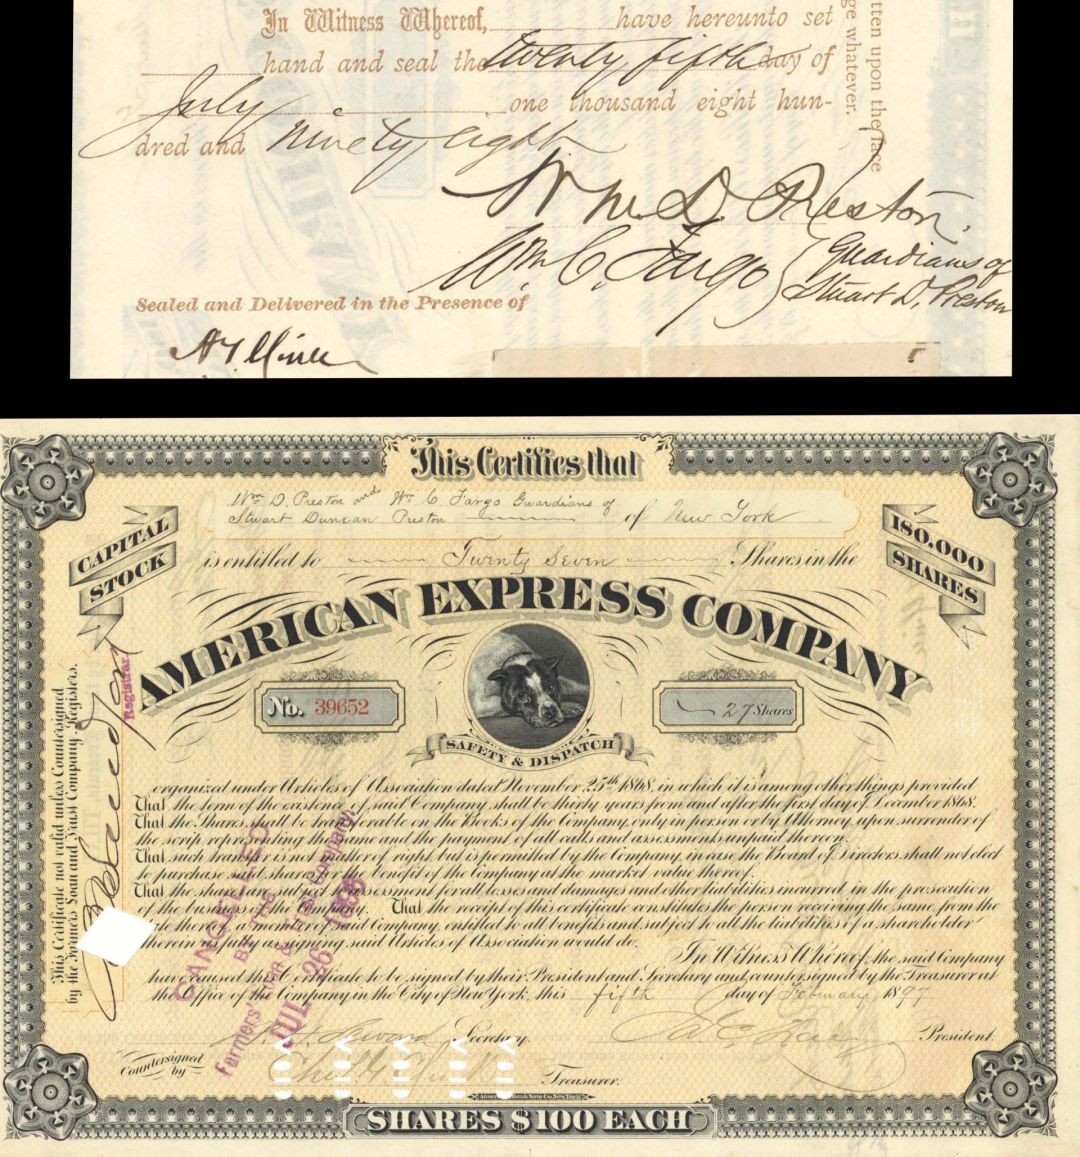 In Witness Whereof, have hereunto set
hand and seal the twenty fifth day of
July one thousand eight hun-
dred and ninety eight
Wm. D. Preston,
Wm. C. Fargo
Guardians of
Stuart D. Preston
Sealed and Delivered in the Presence of
tten upon the face
ge whatever.
This Certifies that
Wm D. Preston and Wm C Fargo Guardians of
Stuart Duncan Preston of New York
CAPITAL
STOCK
180.000
SHARES
is entitled to Twenty Seven Shares in the
AMERICAN EXPRESS COMPANY
No. 39652
27 Shares
SAFETY & DISPATCH
organized under Articles of Association dated November 25th 1868, in which it is among other things provided
That the term of the existence of said Company shall be thirty years from and after the first day of December 1868.
That the Shares shall be transferable on the Books of the Company, only in person or by Attorney, upon surrender of
the scrip representing the same and the payment of all calls and assessments unpaid thereon.
That such transfer is not matter of right, but is permitted by the Company, in case the Board of Directors shall not elect
to purchase such shares for the benefit of the Company at the market value thereof.
That the shares are subject to assessment for all losses and damages and other liabilities incurred in the prosecution
of the business of the Company. That the receipt of this certificate constitutes the person receiving the same, from the
date thereof, a member of said Company, entitled to all benefits and subject to all the liabilities of a shareholder
therein as fully as signing said Articles of Association would do.
In Witness Whereof, the said Company
have caused this Certificate to be signed by their President and Secretary and countersigned by the Treasurer at
the Office of the Company in the City of New York, this fifth day of February 1897
Secretary. President.
Countersigned
by
Treasurer.
American Bank Note Co. New York
SHARES $100 EACH
This Certificate not valid unless Countersigned
by the Farmers Loan and Trust Company Registers.
Registrar
CANCELLED
BY THE
Farmers' Loan & Trust Company.
JUL 26 1898